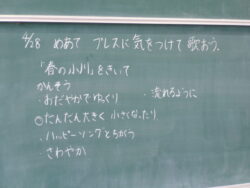 4/28 めあて ブレスに気をつけて歌おう。
「春の小川」をきいて
かんそう
・おだやかでゆっくり ・流れるように
◎だんだん大きく 小さくなったり
・ハッピーソングとちがう
・さわやか